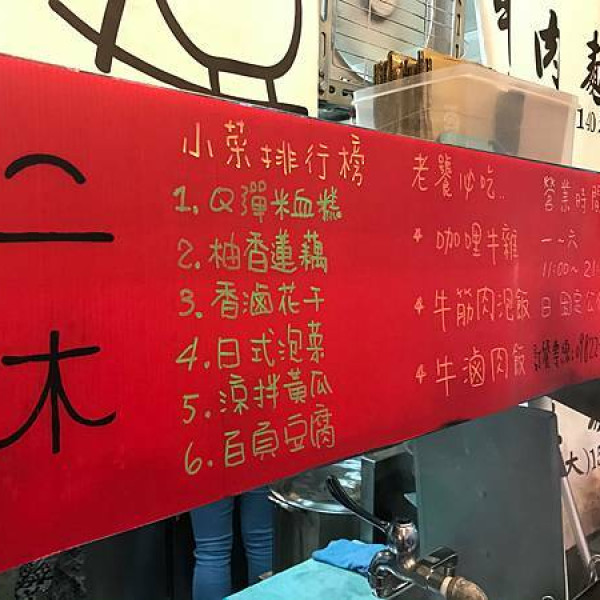 小菜排行榜
1. Q彈米血糕
2. 柚香蓮藕
3. 香滷花干
4. 日式泡菜
5. 涼拌黃瓜
6. 百頁豆腐
老饕必吃..
咖哩牛雜
牛筋肉泡飯
牛滷肉飯
營業時間
一～六
11:00～21
日固定公
訂餐專線:0982
一木
肉麵
140
大)